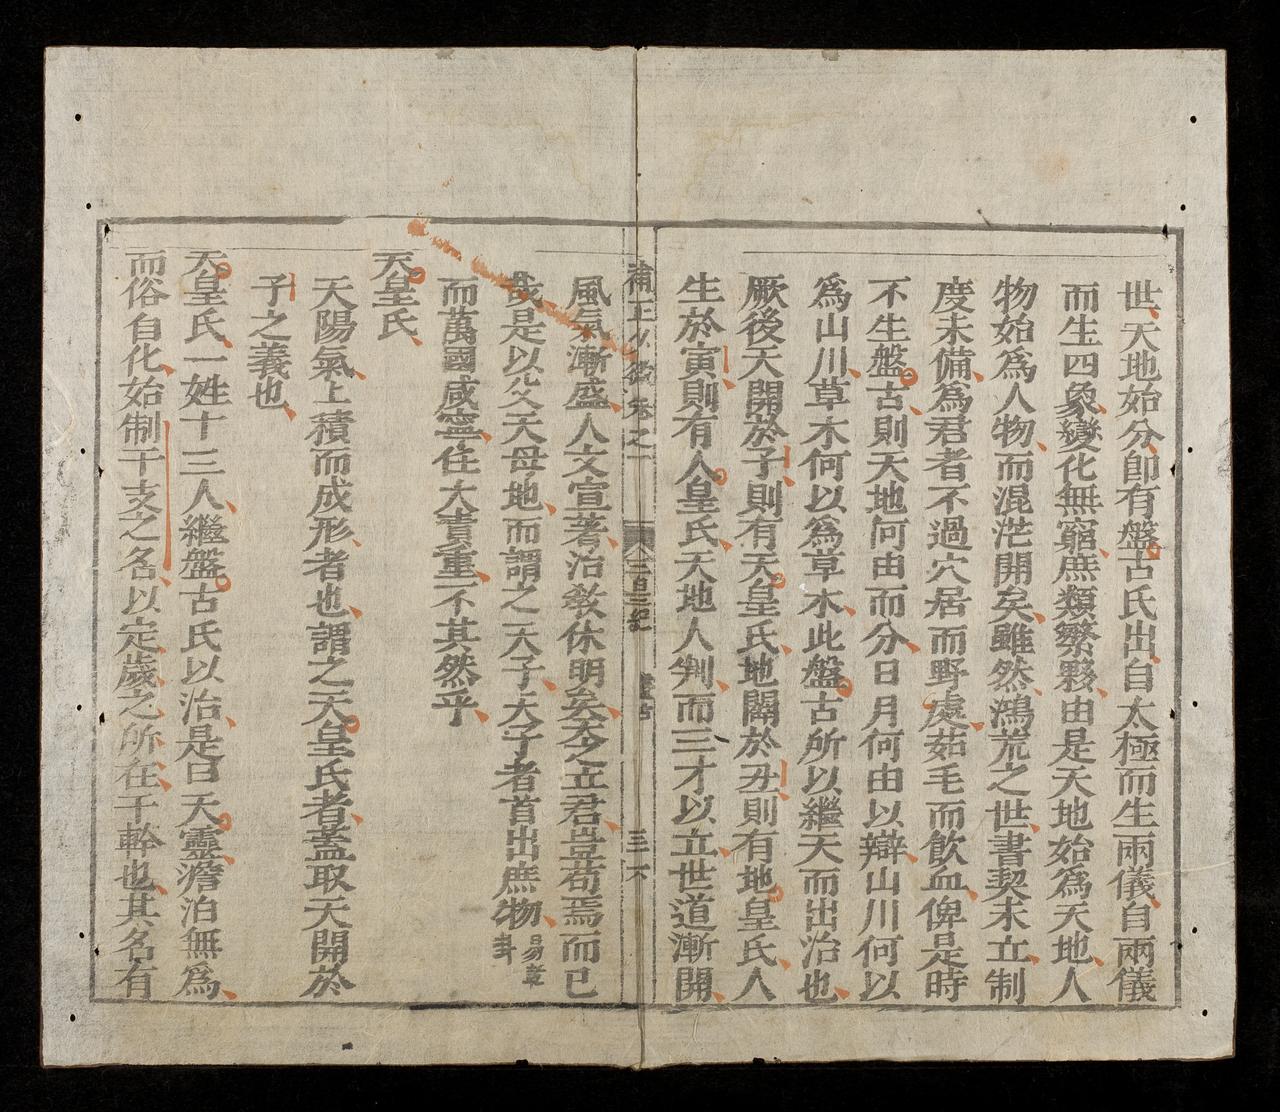 世天地始分即有盤古氏出自太極而生兩儀自兩儀
而生四象變化無窮庶類繁夥由是天地始爲天地人
物始爲人物而混茫開矣雖然鴻荒之世書契未立制
度未備爲君者不過穴居而野處茹毛而飲血俾是時
不生盤古則天地何由而分日月何由以辯山川何以
爲山川草木何以爲草木此盤古所以繼天而出治也
厥後天開於子則有天皇氏地闢於丑則有地皇氏人
生於寅則有人皇氏天地人判而三才以立世道漸開
卷之一
三皇紀
三六
風氣漸盛人文宣著治敎休明矣天之立君豈苟焉而已
哉是以父天母地而謂之天子天子者首出庶物
而萬國咸寧任大責重不其然乎
天皇氏
天陽氣上積而成形者也謂之天皇氏者蓋取天開於
子之義也
天皇氏一姓十三人繼盤古氏以治是曰天靈澹泊無爲
而俗自化始制干支之名以定歲之所在干幹也其名有